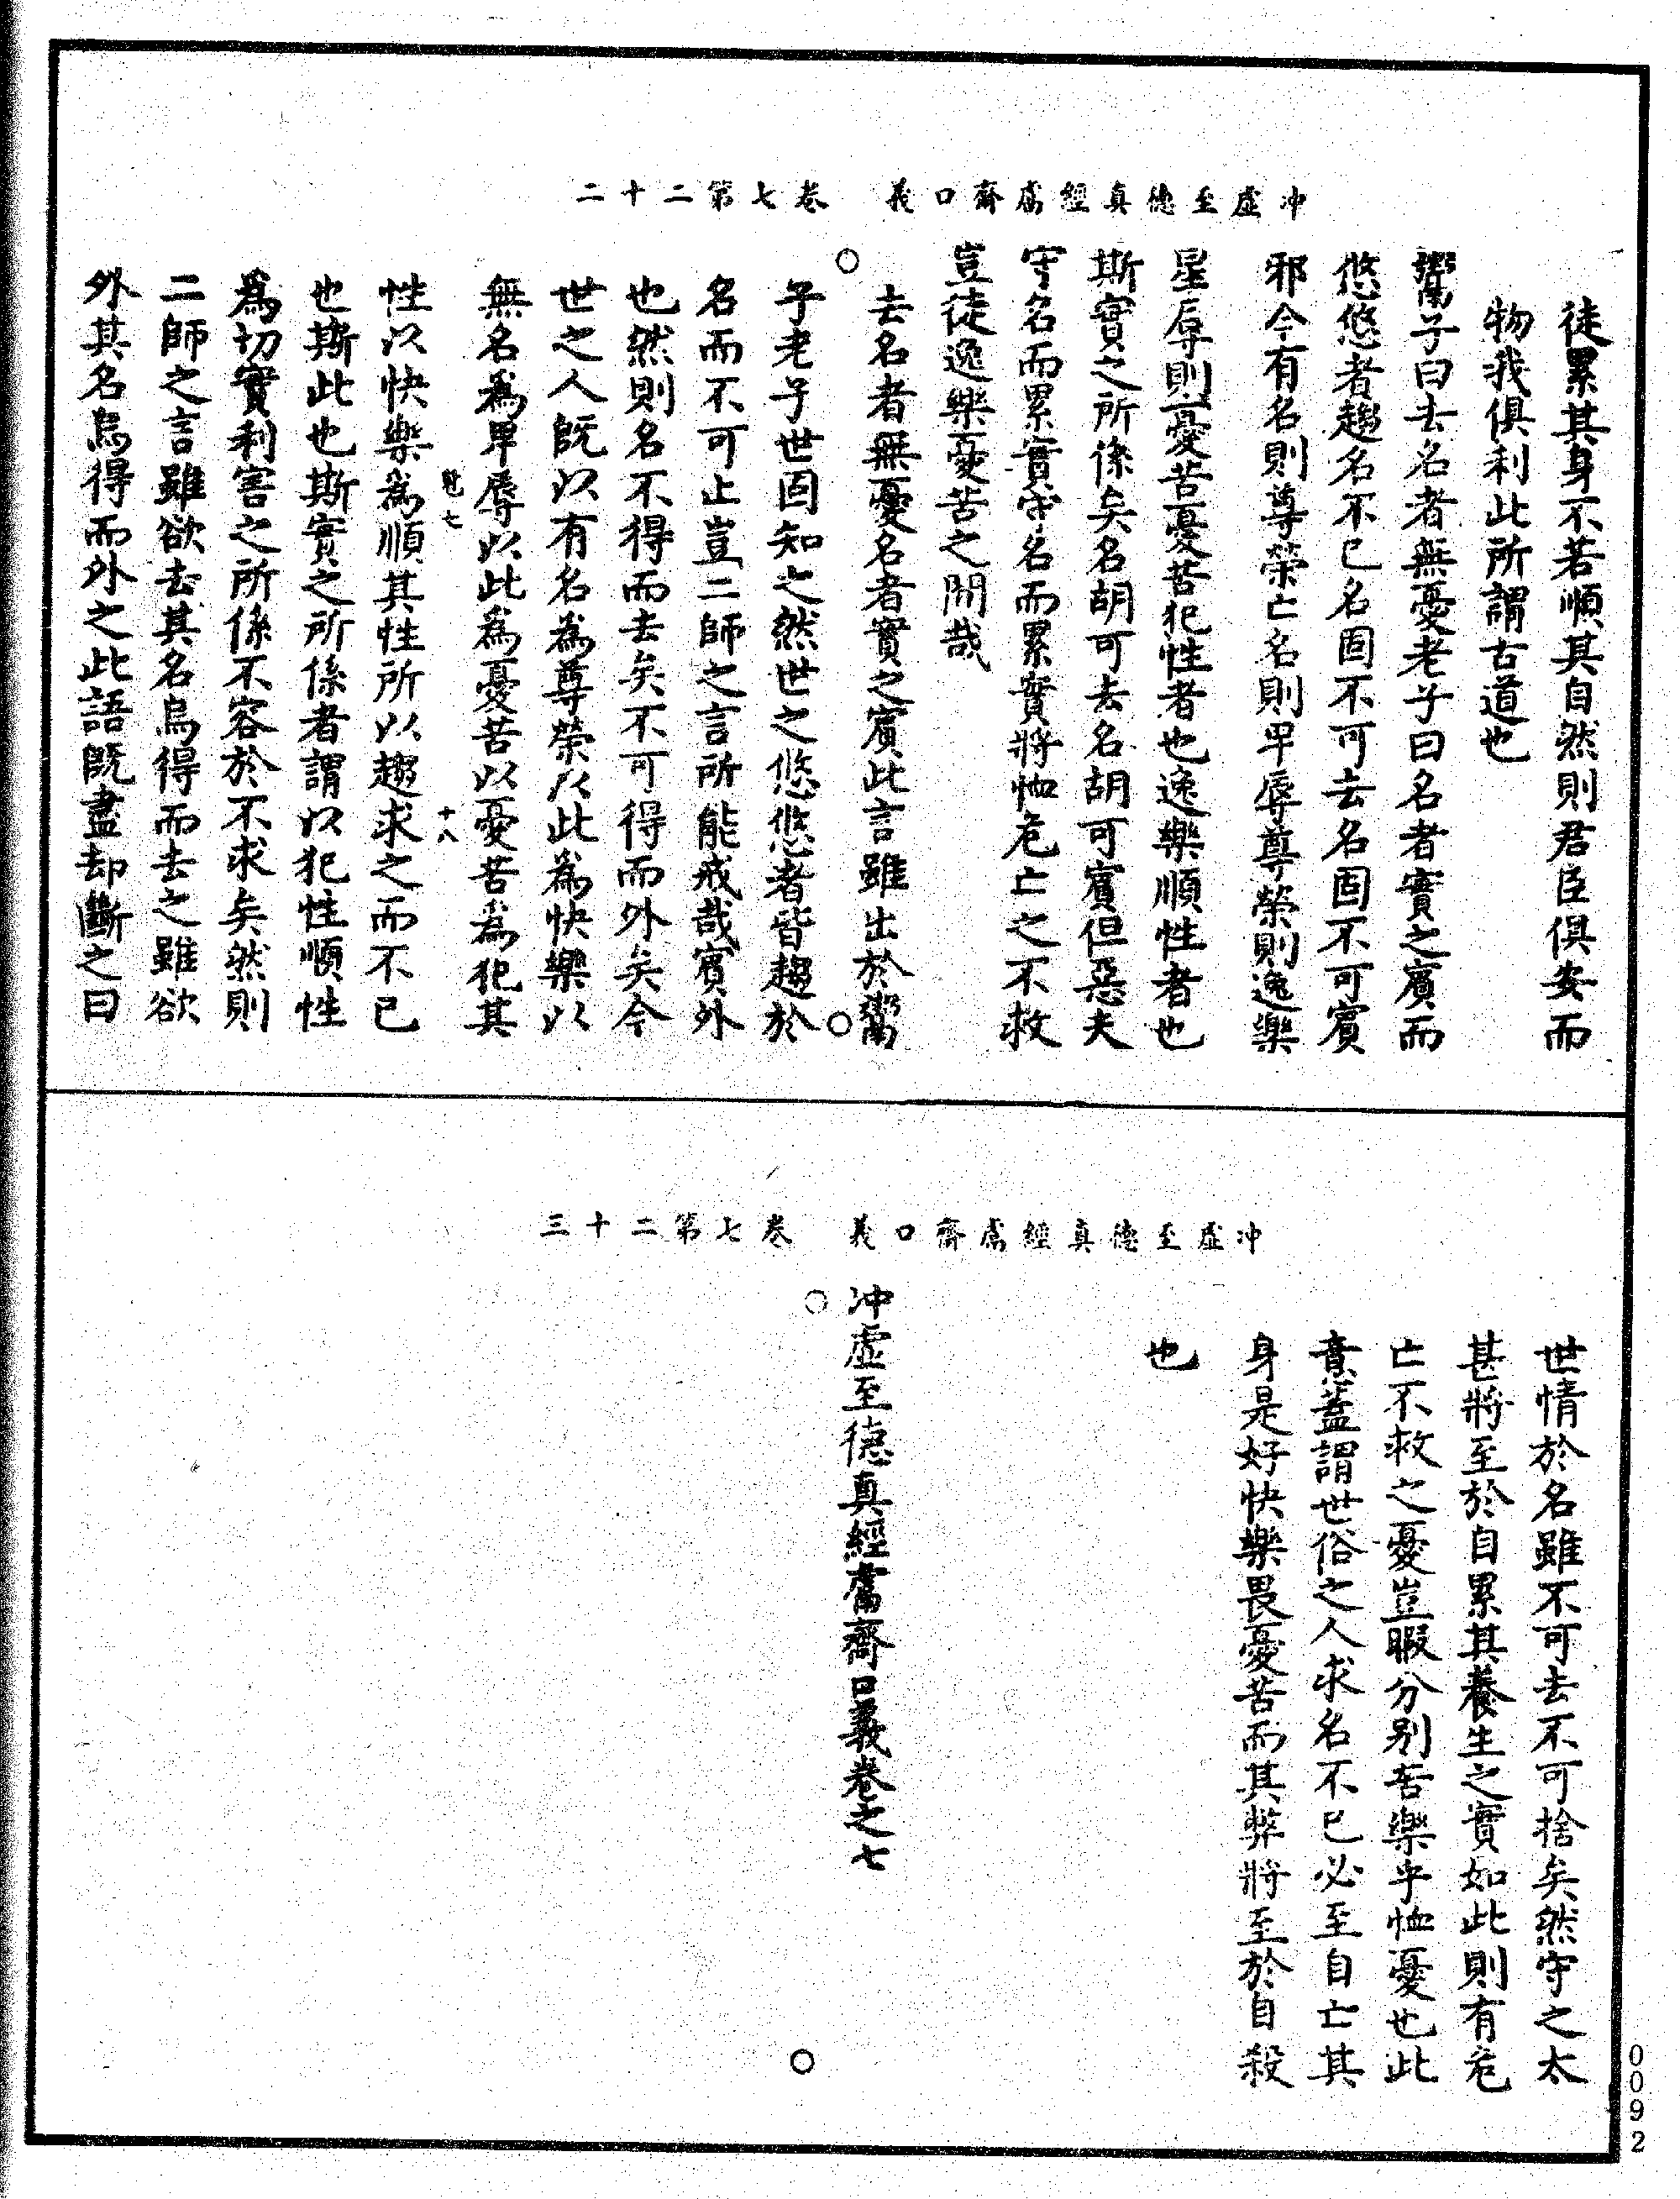 冲虛至德真經鬳齋口義　卷七第二十二
徒累其身不若順其自然則君臣俱安而
物我俱利此所謂古道也
鬻子曰去名者無憂老子曰名者實之賓而
悠悠者趨名不已名固不可去名固不可賓
邪今有名則尊榮亡名則卑辱尊榮則逸樂
星辱則憂苦憂苦犯性者也逸樂順性者也
斯實之所係矣名胡可去名胡可賓但惡夫
守名而累實守名而累實將恤危亡之不救
豈徒逸樂憂苦之間哉
去名者無憂名者實之賓此言雖出於鬻
子老子世固知之然世之悠悠者皆趨於
名而不可止豈二師之言所能戒哉賓外
也然則名不得而去矣不可得而外矣今
世之人既以有名為尊榮以此為快樂以
無名為卑辱以此為憂苦以憂苦為犯其
十八
性以快樂為順其性所以趨求之而不已
也斯此也斯實之所係者謂以犯性順性
為切實利害之所係不容於不求矣然則
二師之言雖欲去其名烏得而去之雖欲
外其名烏得而外之此語既盡却斷之曰
冲虛至德真經鬳齋口義　卷七第二十三
世情於名雖不可去不可捨矣然守之太
甚將至於自累其養生之實如此則有危
亡不救之憂豈暇分别苦樂乎恤憂也此
意蓋謂世俗之人求名不已必至自亡其
身是好快樂畏憂苦而其弊將至於自殺
也
冲虛至德真經鬳齋口義卷之七
0092